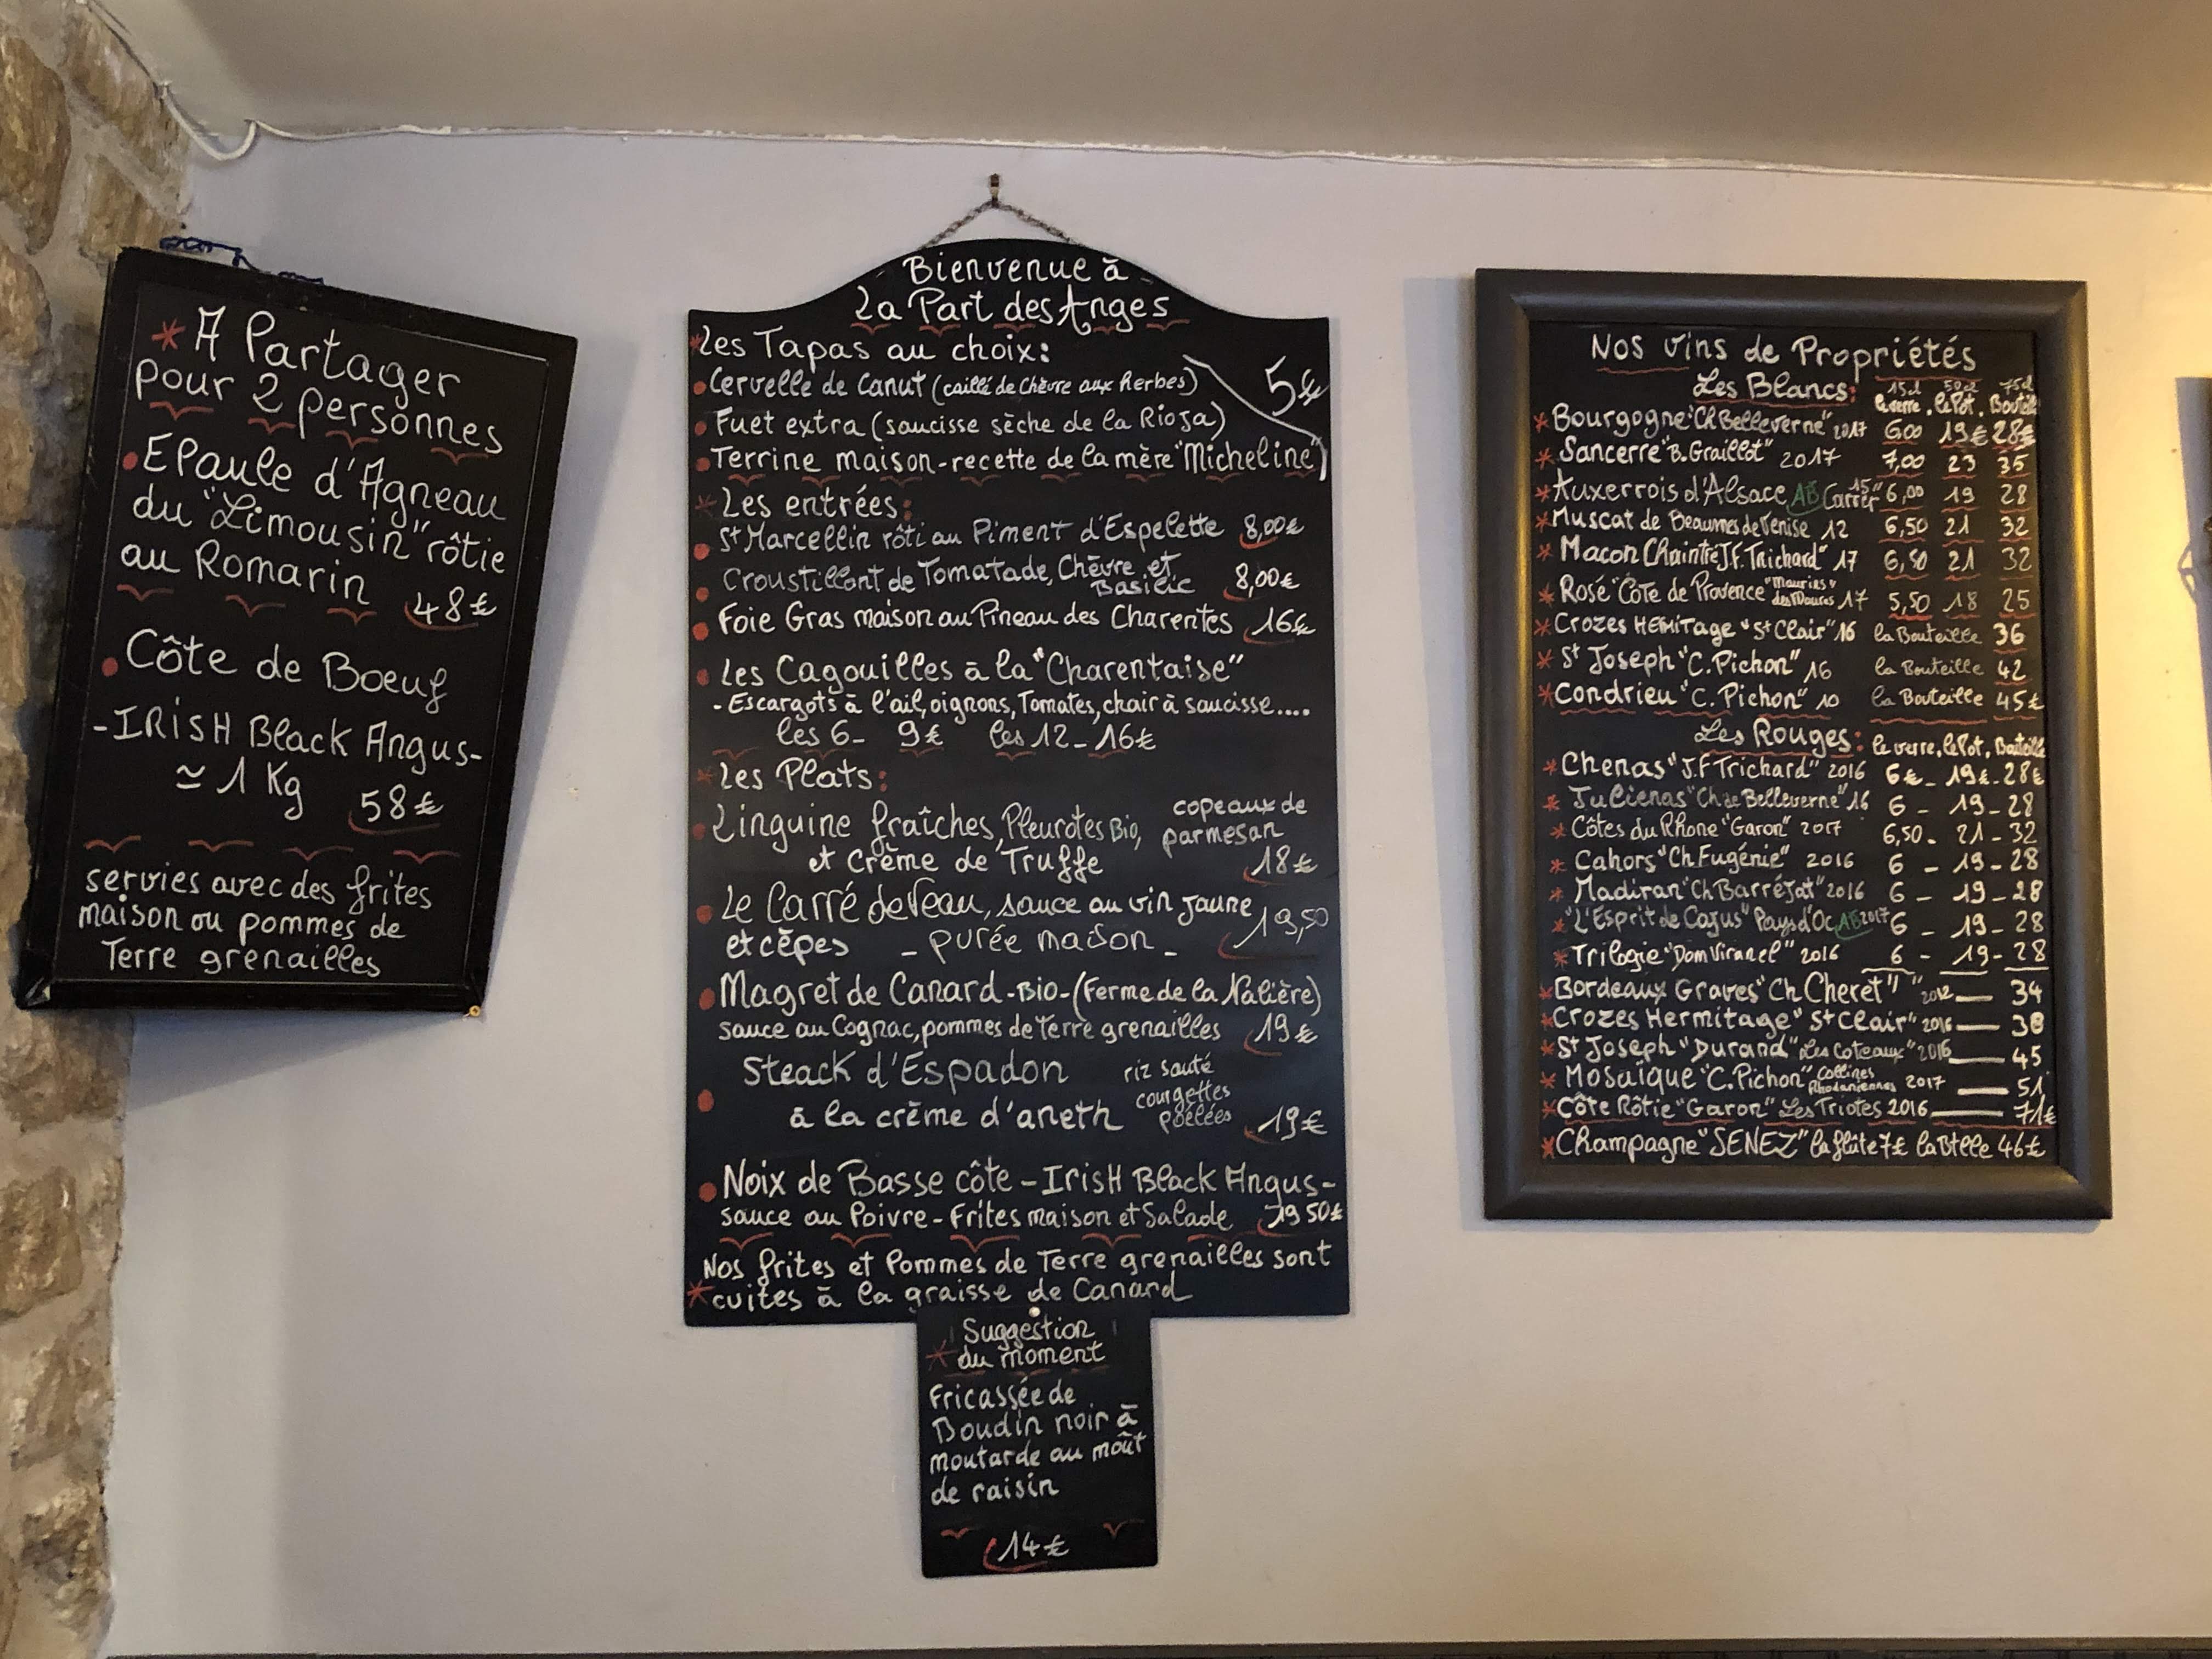 * A Partager
pour 2 personnes
• Epaule d'Agneau
du "Limousin" rôtie
au Romarin 48€
• Côte de Boeuf
-IRISH Black Angus-
≃ 1 Kg 58€
servies avec des frites
maison ou pommes de
Terre grenailles
Bienvenue à
La Part des Anges
* Les Tapas au choix:
• Cervelle de Canut (caillé de chèvre aux herbes) 5€
• Fuet extra (saucisse sèche de la Rioja)
• Terrine maison-recette de la mère "Micheline"
* Les entrées:
• St Marcellin rôti au Piment d'Espelette 8,00€
• Croustillant de Tomatade, Chèvre et
Basilic 8,00€
• Foie Gras maison au Pineau des Charentes 16€
• Les Cagouilles à la "Charentaise"
- Escargots à l'ail, oignons, Tomates, chair à saucisse....
les 6- 9€ les 12-16€
* Les Plats:
• Linguine fraîches, Pleurotes Bio, copeaux de parmesan
et Crème de Truffe 18€
• Le Carré de Veau, sauce au vin jaune
et cèpes - purée maison - 19,50
• Magret de Canard -Bio- (Ferme de la Nalière)
sauce au Cognac, pommes de terre grenailles 19€
• Steack d'Espadon riz sauté
à la crème d'aneth courgettes poêlées 19€
• Noix de Basse côte - IrisH Black Angus-
sauce au Poivre - Frites maison et Salade 19 50€
Nos frites et Pommes de Terre grenailles sont
* cuites à la graisse de Canard
Suggestion
* du moment
Fricassée de
Boudin noir à
moutarde au moût
de raisin
14€
Nos vins de Propriétés
Les Blancs: 15cl le verre, 50cl le Pot, 75cl Bouteille
* Bourgogne "Ch Belleverne" 2017 6,00 19€ 28€
* Sancerre "B. Graillot" 2017 7,00 23 35
* Auxerrois d'Alsace AB 15 6,00 19 28
* Muscat de Beaumes de Venise 12 6,50 21 32
* Macon Chaintré J.F. Trichard" 17 6,50 21 32
* Rosé "Côte de Provence des Maures 17 5,50 18 25
* Crozes HERMiTage "St Clair" 16 la Bouteille 36
* St Joseph "C. Pichon" 16 la Bouteille 42
* Condrieu "C. Pichon" 10 la Bouteille 45€
Les Rouges: le verre, le Pot, Bouteille
* Chenas "J.F Trichard" 2016 6€ - 19€ - 28€
* Julienas "Ch de Belleverne" 16 6 - 19 - 28
* Côtes du Rhone "Garon" 2017 6,50 - 21 - 32
* Cahors "Ch Eugénie" 2016 6 - 19 - 28
* Madiran "Ch Barréjat" 2016 6 - 19 - 28
* "L'Esprit de Cajus" Pays d'Oc AB 2017 6 - 19 - 28
* Trilogie "Dom Viranel" 2016 6 - 19 - 28
* Bordeaux Graves "Ch Cheret" 2012 — 34
* Crozes Hermitage "St Clair" 2016 —
* St Joseph "Durand" "Les Coteaux" 2016 — 45
* Mosaïque "C. Pichon" Collines Rhodaniennes 2017 — 51
* Côte Rôtie "Garon" Les Triotes 2016 — 71€
* Champagne "SENEZ" la flûte 7€ la Btlle 46€